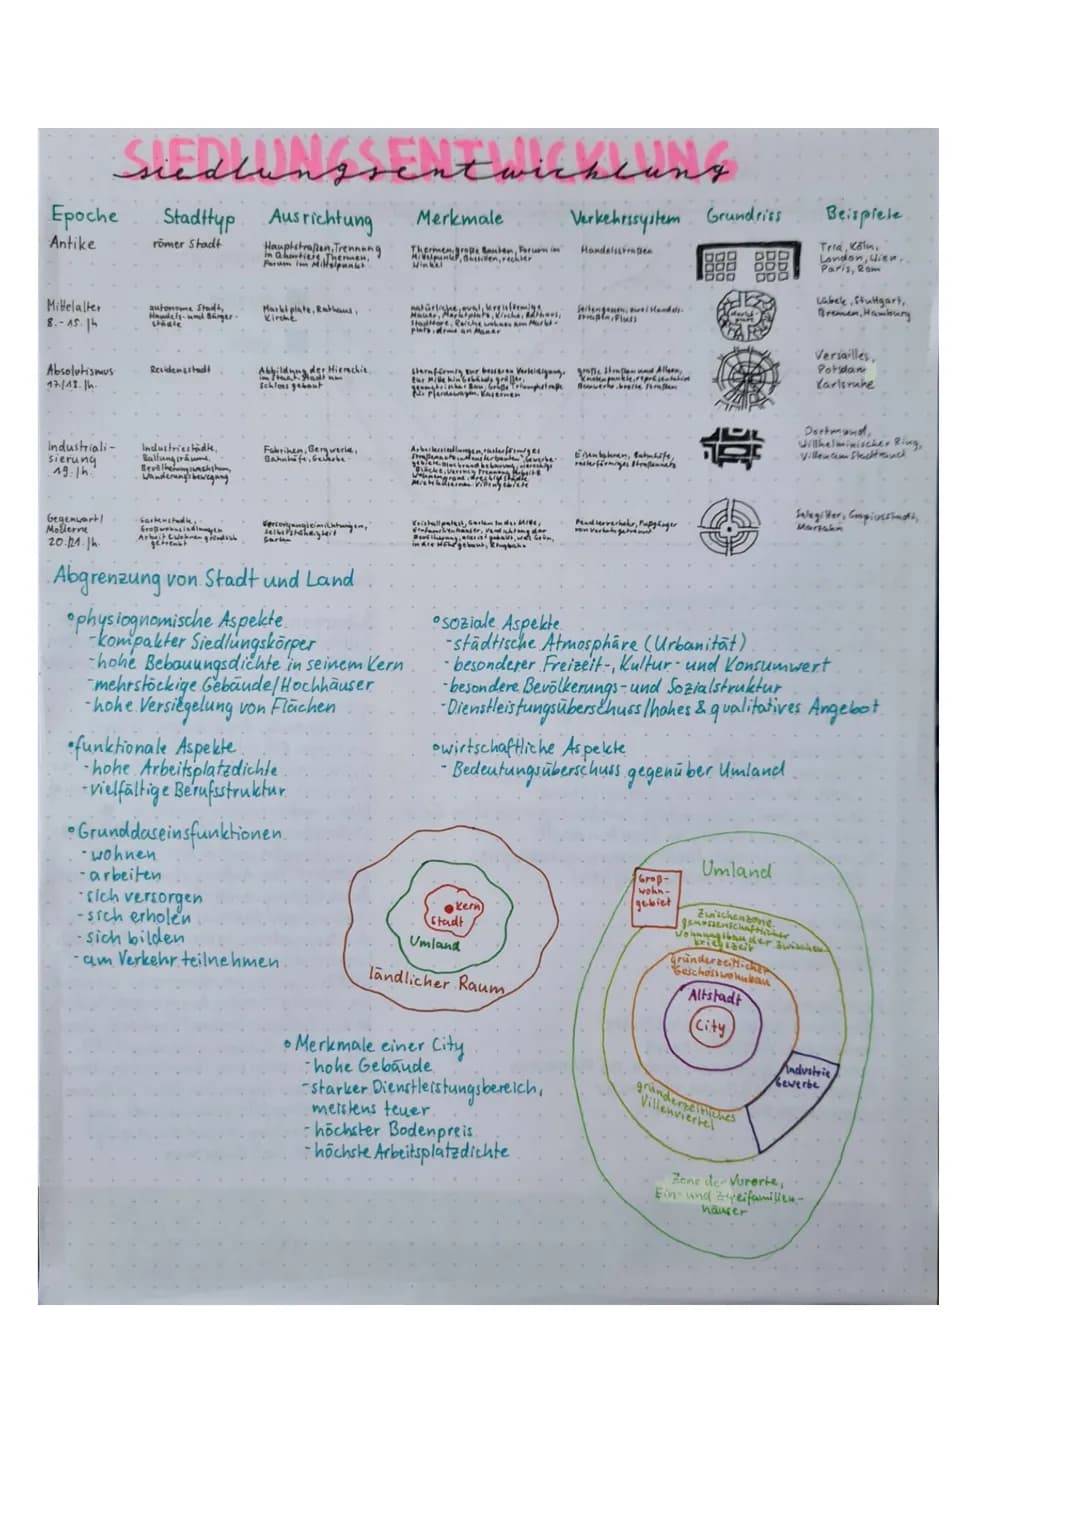 SIEDLUNGSENTWICKLUNG
siedlungsentwicklung
Epoche Stadttyp Ausrichtung Merkmale Verkehrssystem Grundriss Beispiele
Antike römer Stadt Hauptstraßen, Trennung Thermen, große Bauten, Forum im Handelsstraßen
in Quartiere, Thermen, Mittelpunkt, Basiliken, rechter
Forum im Mittelpunkt Winkel
Köln,
London, Wien,
Paris, Rom
Mittelalter autonome Stadt, Marktplatz, Rathaus, natürliche, oval, kreisförmige
8.-15. Jh Handels- und Bürger- Kirche Mauer, Marktplatz, Kirche, Rathaus,
städte Stadttore, Reiche wohnen am Markt-
platz, arme an Mauer
Seitengassen, zwei Handels-
straßen, Fluss
Markt-
platz
Stuttgart,
Bremen, Hamburg
Absolutismus Residenzstadt Abbildung der Hierachie
17./18. Jh. im Staat, Stadt um
Schloss gebaut
sternförmig zur besseren Verteidigung,
zur Mitte hin Gebäude größer,
geometrischer Bau, Große Triumphstraße
für Pferdewagen, Kasernen
große Straßen und Alleen,
Knotenpunkte, repräsentative
Bauwerke, breite Straßen
Versailles,
Potsdam
Karlsruhe
Industriali- Industriestädte, Fabriken, Bergwerke,
sierung Ballungsräume, Bahnhöfe, Gewerbe
19. Jh. Bevölkerungswachstum,
Wanderungsbewegung
Arbeitersiedlungen, rasterförmiges
Eisenbahnen, Bahnhöfe,
rasterförmiges Straßennetz
Dortmund,
Willhelminischer Ring,
Villen am Stadtrand
Gegenwart/ Gartenstadt, Versorgungseinrichtungen,
Moderne Großwohnsiedlungen Selbstständigkeit
20./21. Jh. Arbeit & Wohnen gründlich Garten
getrennt
Kristallpalast, Garten in der Mitte,
Einfamilienhäuser, Verdichtung der
in die Höhe gebaut,
Pendlerverkehr, Fußgänger
von Verkehr getrennt
Marzahn
Abgrenzung von Stadt und Land
° physiognomische Aspekte
- kompakter Siedlungskörper
- hohe Bebauungsdichte in seinem Kern
- mehrstöckige Gebäude/Hochhäuser
- hohe Versiegelung von Flächen
° soziale Aspekte
- städtische Atmosphäre (Urbanität)
- besonderer Freizeit-, Kultur- und Konsumwert
- besondere Bevölkerungs- und Sozialstruktur
- Dienstleistungsüberschuss/hohes & qualitatives Angebot
° funktionale Aspekte
- hohe Arbeitsplatzdichte
- vielfältige Berufsstruktur
° wirtschaftliche Aspekte
- Bedeutungsüberschuss gegenüber Umland
° Grunddaseinsfunktionen
- wohnen
- arbeiten
- sich versorgen
- sich erholen
- sich bilden
- am Verkehr teilnehmen
Kern
Stadt
Umland
ländlicher Raum
Umland
Groß-
wohn-
gebiet
Zwischenzone
genossenschaftlicher
Wohnungsbau der Zwischen-
kriegszeit
gründerzeitlicher
Geschosswohnbau
Altstadt
City
Industrie
Gewerbe
gründerzeitliches
Villenviertel
Zone der Vororte,
Ein- und Zweifamilien-
häuser
° Merkmale einer City
- hohe Gebäude
- starker Dienstleistungsbereich,
meistens teuer
- höchster Bodenpreis
- höchste Arbeitsplatzdichte